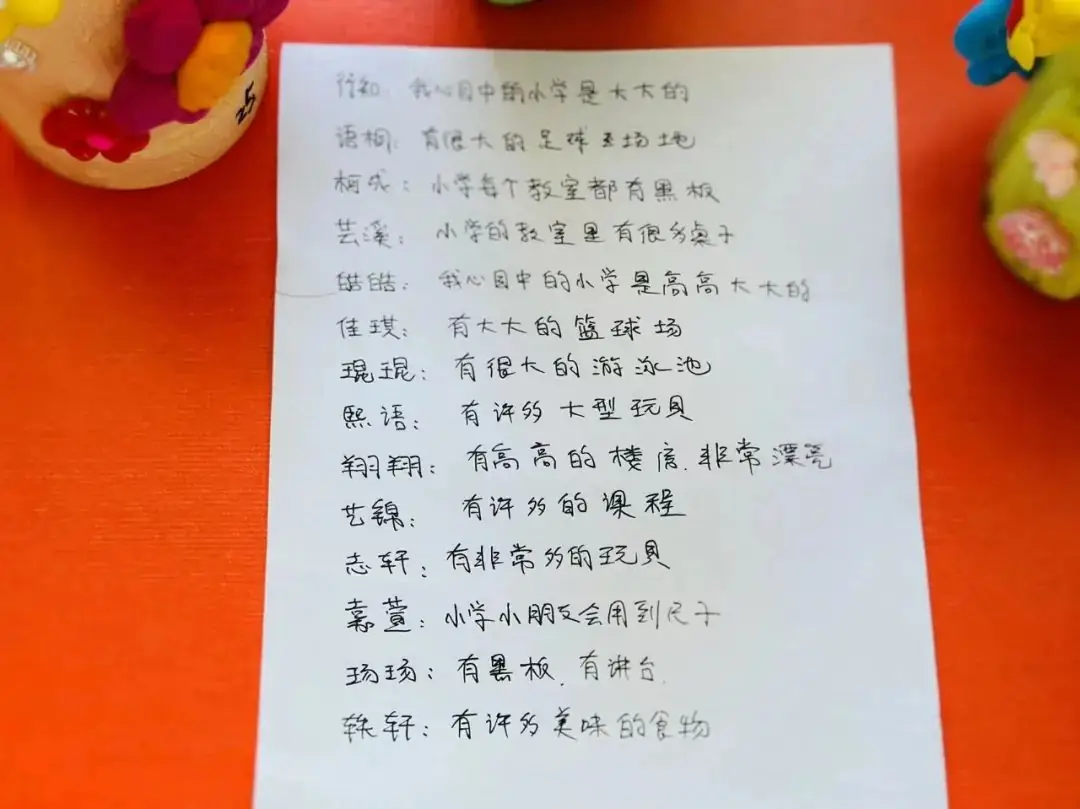 25
行知: 我心目中的小学是大大的
语桐: 有很大的足球场地
柯成: 小学每个教室都有黑板
芸溪: 小学的教室里有很多桌子
皓皓: 我心目中的小学是高高大大的
佳琪: 有大大的篮球场
琨琨: 有很大的游泳池
熙语: 有许多大型玩具
翔翔: 有高高的楼房.非常漂亮
艺锦: 有许多的课程
志轩: 有非常多的玩具
嘉萱: 小学小朋友会用到尺子
玚玚: 有黑板.有讲台.
轩: 有许多美味的食物